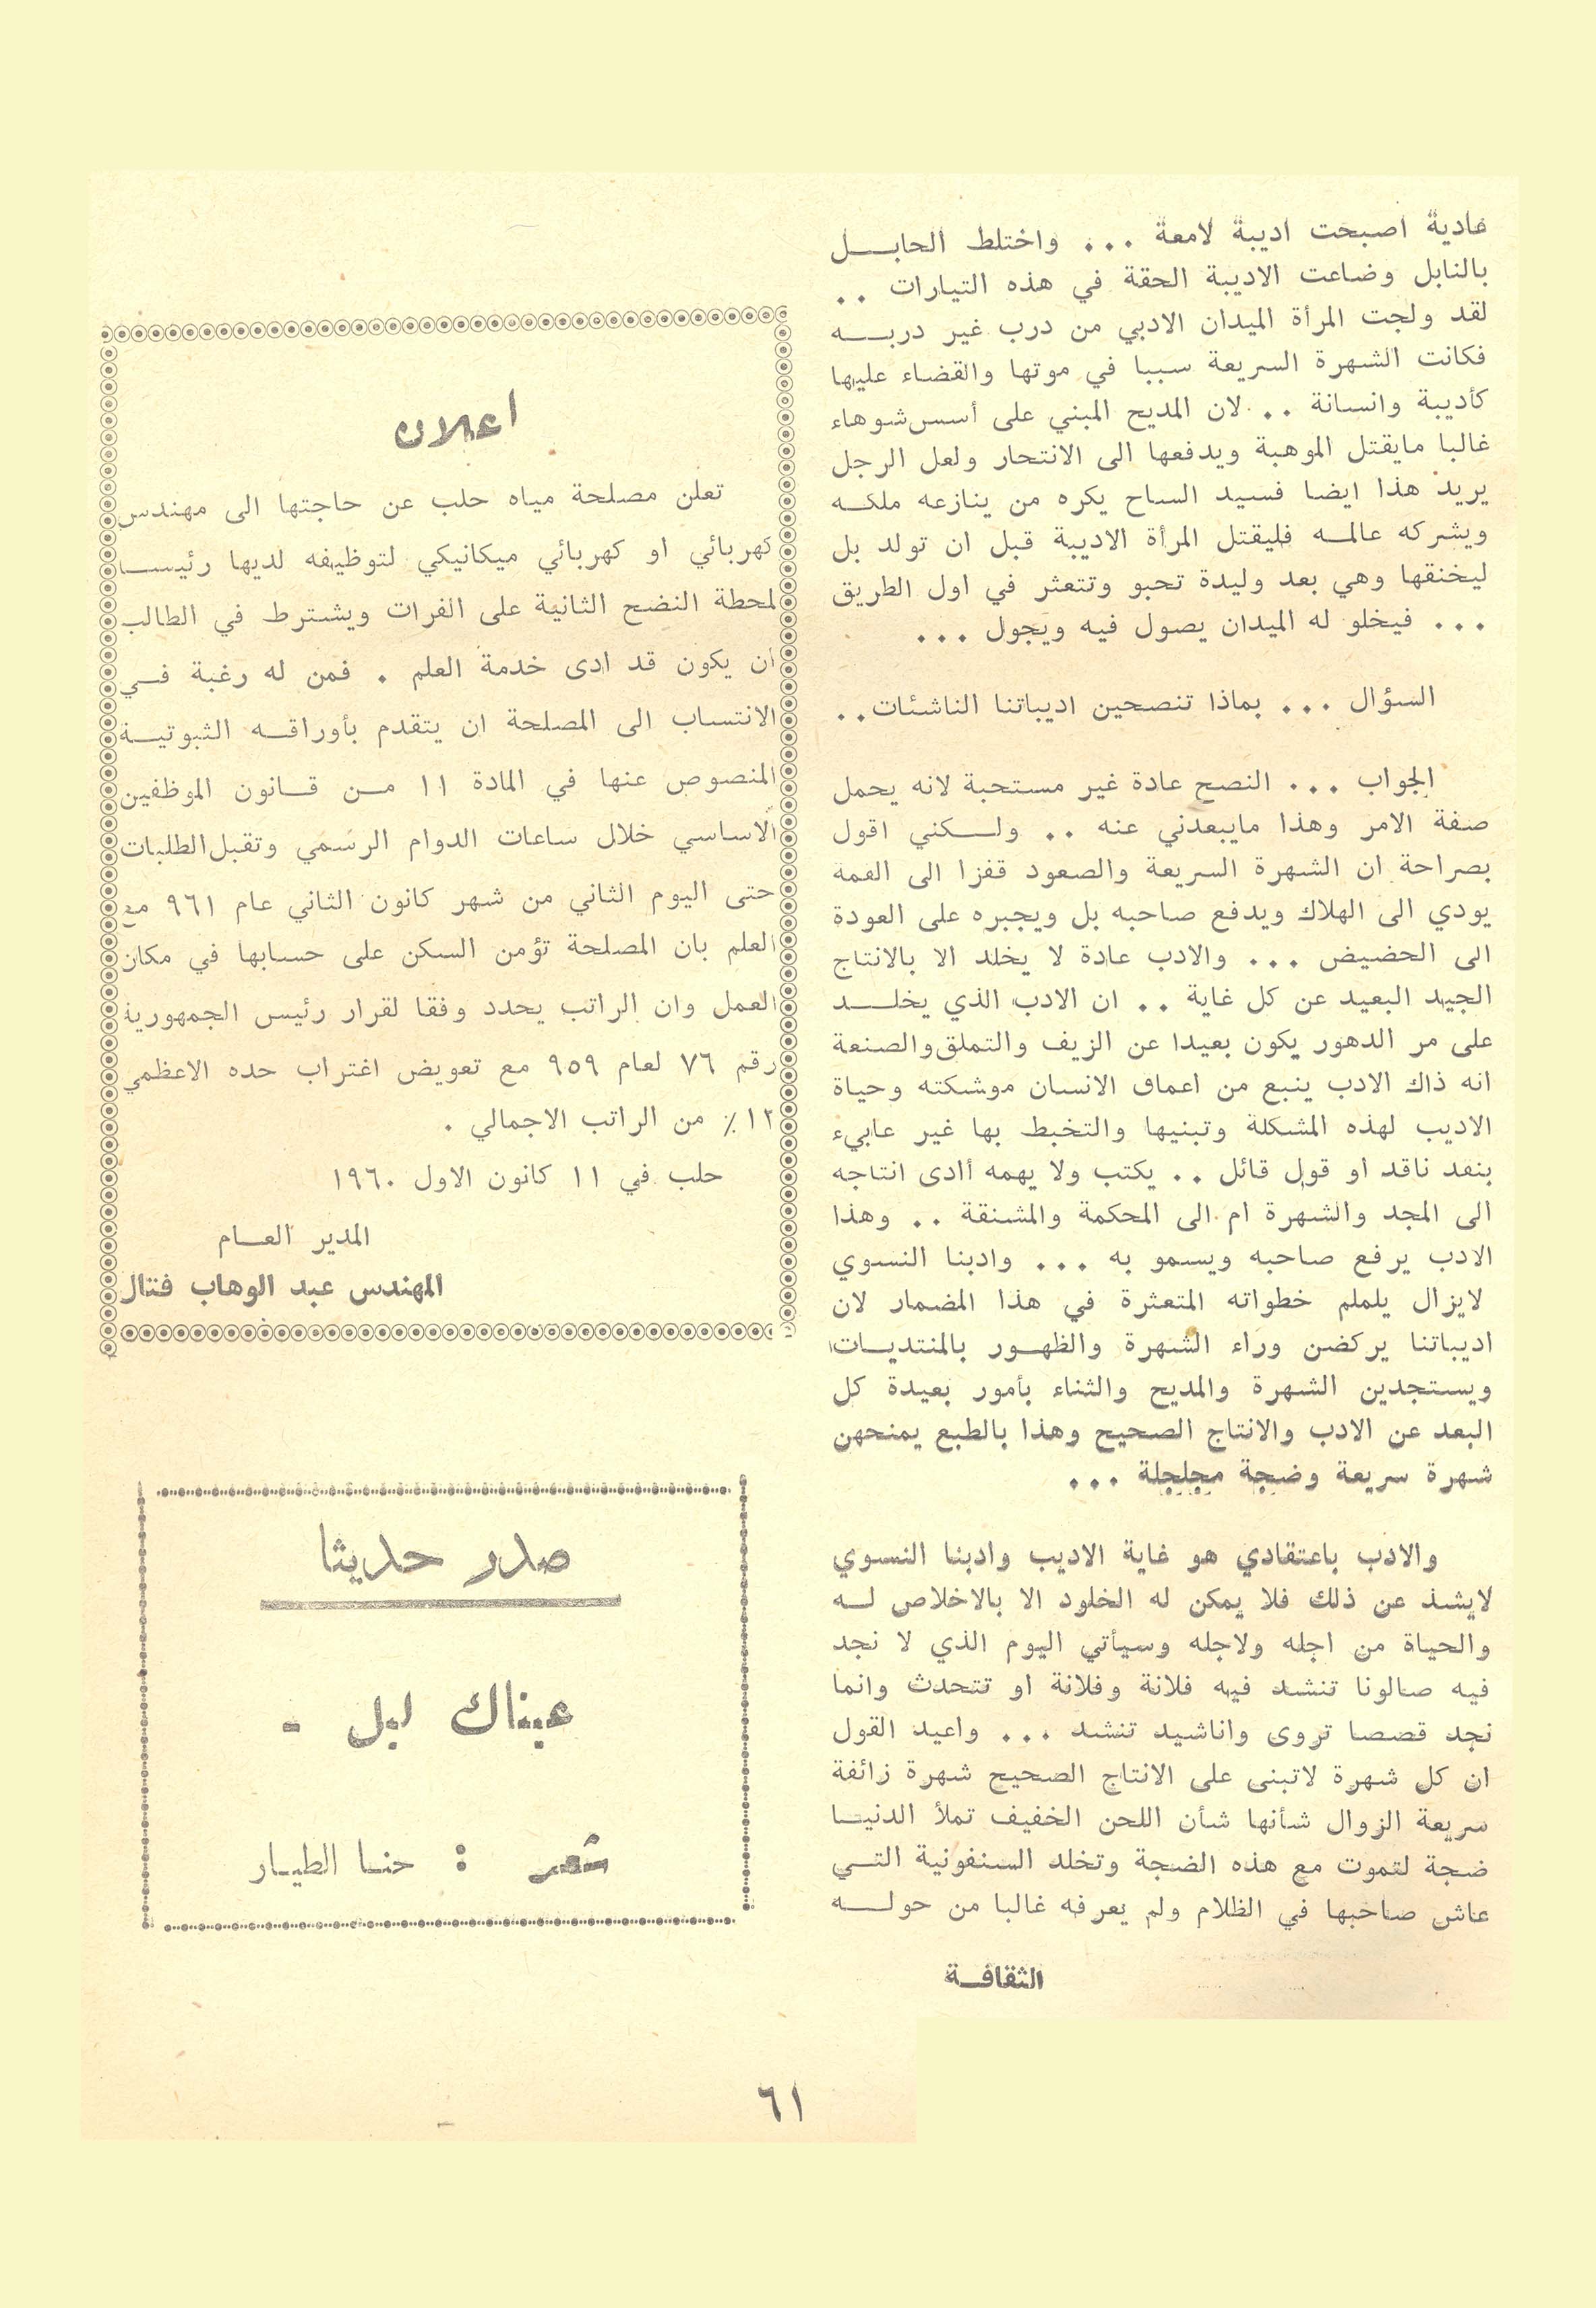 عادية اصبحت اديبة لامعة ... واختلط الحابـــل
بالنابل وضاعت الاديبة الحقة في هذه التيارات ..
لقد ولجت المرأة الميدان الادبي من درب غير دربـــه
فكانت الشهرة السريعة سببا في موتها والقضاء عليها
كأديبة وانسانة .. لان المديح المبني على أسس شوهاء
غالبا مايقتل الموهبة ويدفعها الى الانتحار ولعل الرجل
يريد هذا ايضا فسيد الساح يكره من ينازعه ملكــه
ويشركه عالمــه فليقتل المرأة الاديبة قبل ان تولد بل
ليخنقها وهي بعد وليدة تحبو وتتعثر في اول الطريق
... فيخلو له الميدان يصول فيه ويجول ...
السؤال ... بماذا تنصحين اديباتنا الناشئات..
الجواب ... النصح عادة غير مستحبة لانه يحمل
صفة الامر وهذا مايبعدني عنه .. ولــكني اقول
بصراحة ان الشهرة السريعة والصعود قفزا الى القمة
يودي الى الهلاك ويدفع صاحبه بل ويجبره على العودة
الى الحضيض ... والادب عادة لا يخلد الا بالانتاج
الجيد البعيد عن كل غاية .. ان الادب الذي يخلـــد
على مر الدهور يكون بعيدا عن الزيف والتملق والصنعة
انه ذاك الادب ينبع من اعماق الانسان موشكته وحياة
الاديب لهذه المشكلة وتبنيها والتخبط بها غير عابيء
بنقد ناقد او قول قائل .. يكتب ولا يهمه أأدى انتاجه
الى المجد والشهرة ام الى المحكمة والمشنقة .. وهذا
الادب يرفع صاحبه ويسمو به ... وادبنا النسوي
لايزال يلملم خطواته المتعثرة في هذا المضمار لان
اديباتنا يركضن وراء الشهرة والظهــور بالمنتديــات
ويستجدين الشهرة والمديح والثناء بأمور بعيدة كل
البعد عن الادب والانتاج الصحيح وهذا بالطبع يمنحهن
شهرة سريعة وضجة مجلجلة ...
والادب باعتقادي هو غاية الاديب وادبنا النسوي
لايشذ عن ذلك فلا يمكن له الخلود الا بالاخلاص لــه
والحياة من اجله ولاجله وسيأتي اليوم الذي لا نجد
فيه صالونا تنشد فيه فلانة وفلانة او تتحدث وانما
نجد قصصا تروى واناشيد تنشد ... واعيد القول
ان كل شهرة لاتبنى على الانتاج الصحيح شهرة زائفة
سريعة الزوال شأنها شأن اللحن الخفيف تملأ الدنيــا
ضجة لتموت مع هذه الضجة وتخلد السنفونية التــي
عاش صاحبها في الظلام ولم يعرفه غالبا من حولـــه
الثقافــة
اعلان
تعلن مصلحة مياه حلب عن حاجتها الى مهندس
كهربائي او كهربائي ميكانيكي لتوظيفه لديها رئيســا
لمحطة النضح الثانية على الفرات ويشترط في الطالب
ان يكون قد ادى خدمة العلم . فمن له رغبة فــي
الانتساب الى المصلحة ان يتقدم بأوراقــه الثبوتيــة
المنصوص عنها في المادة ١١ مــن قــانون الموظفين
الاساسي خلال ساعات الدوام الرسمي وتقبل الطلبات
حتى اليوم الثاني من شهر كانون الثاني عام ٩٦١ مع
العلم بان المصلحة تؤمن السكن على حسابها في مكان
العمل وان الراتب يحدد وفقا لقرار رئيس الجمهورية
رقم ٧٦ لعام ٩٥٩ مع تعويض اغتراب حده الاعظمي
١٢٪ من الراتب الاجمالي .
حلب في ١١ كانون الاول ١٩٦٠
المدير العــام
المهندس عبد الوهاب فتال
صدر حديثا
عيناك ليل -
شعر : حنــا الطيــار
٦١